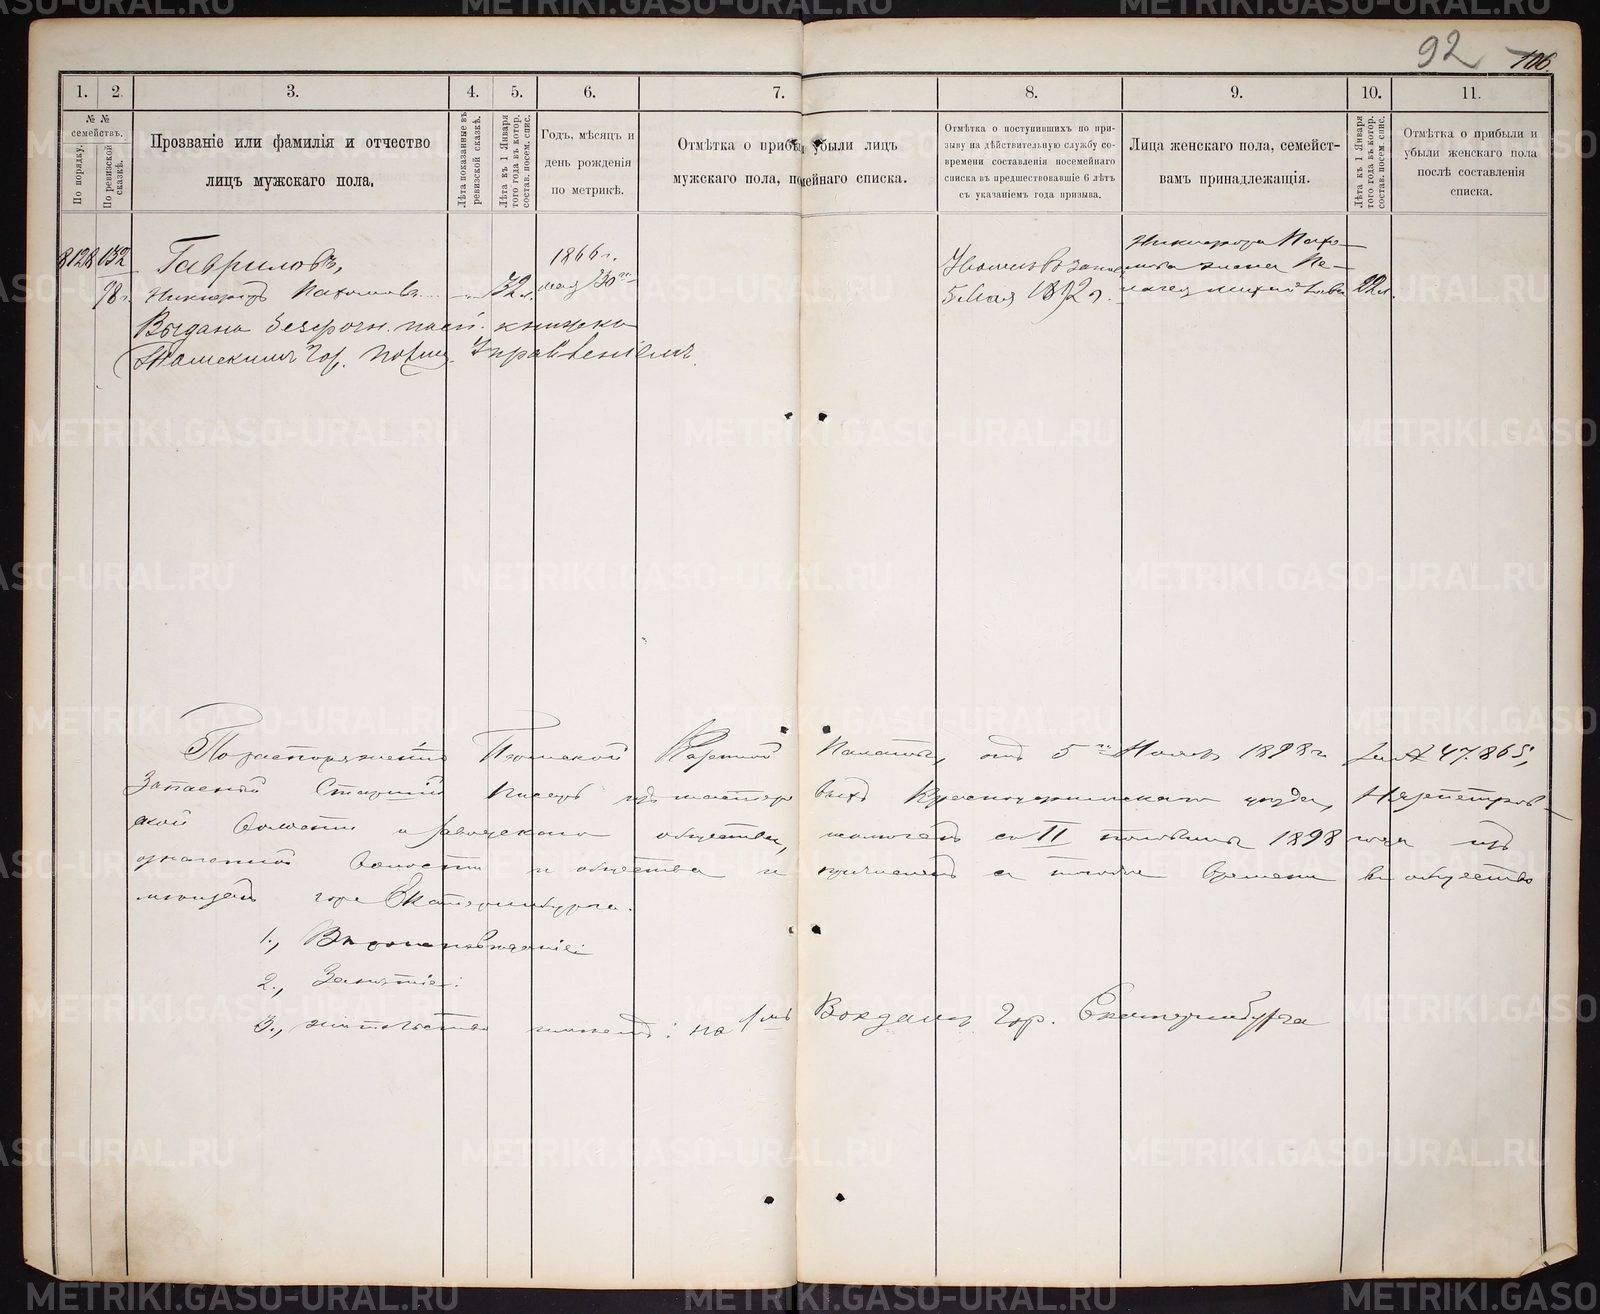 92 106
1. 2. 3. 4. 5. 6. 7. 8. 9. 10. 11.
№ № семействъ.
По порядку.
По ревизской сказкѣ.
Прозваніе или фамилія и отчество
лицъ мужскаго пола.
Лѣта показанные въ
ревизской сказкѣ.
Лѣта къ 1 Января
того года въ котор.
состав. посем. спис.
Годъ, мѣсяцъ и
день рожденія
по метрикѣ.
Отмѣтка о прибы убыли лицъ
мужскаго пола, по мейнаго списка.
Отмѣтка о поступившихъ по при-
зыву на дѣйствительную службу со-
времени составленія посемейнаго
списка въ предшествовавшіе 6 лѣтъ
съ указаніемъ года призыва.
Лица женскаго пола, семейст-
вамъ принадлежащія.
Лѣта къ 1 Января
того года въ котор.
состав. посем. спис.
Отмѣтка о прибыли и
убыли женскаго пола
послѣ составленія
списка.
132
98 г.
Гавриловъ,
Никифоръ Пахомовъ
32 л.
1866 г.
мая 30
Уволенъ въ запас
5 Мая 1892 г.
Никифора Пахо-
мова жена Пе-
лагея
22 л.
Выдана безсрочн. пасп. книжка
гор. полиц. Управленіемъ.
По распоряженію Пермской Казенной Палаты, отъ 5 1898 г за № 47.865,
Запасный Старшій Писарь изъ мастеровыхъ Красноуфимскаго уѣзда, Нязепетров-
ской волости и заводскаго общества, исключенъ со II половины 1898 года изъ
означенной волости и общества и причисленъ съ того же времени въ общество
мѣщанъ гор. Екатеринбурга.
1.,
2., Занятіе:
3., жительство имѣетъ: на Вокзалѣ гор. Екатеринбурга
METRIKI.GASO-URAL.RU